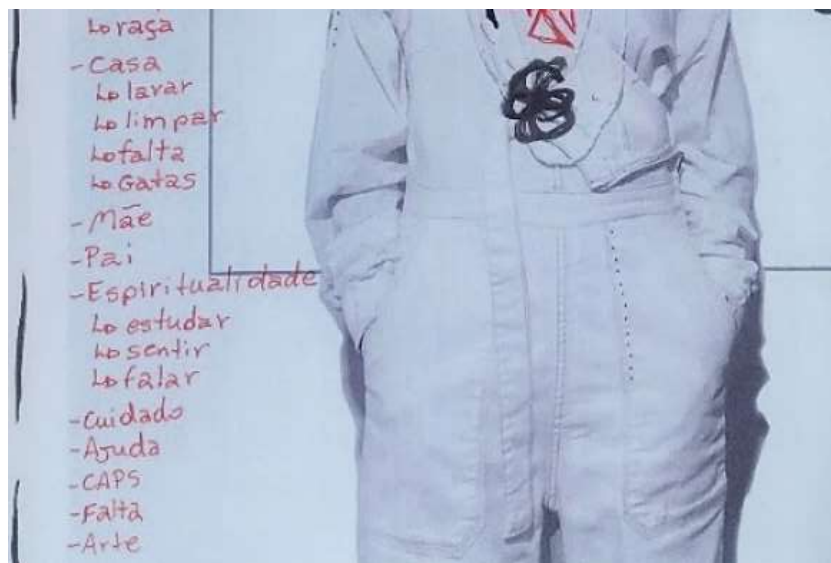 ↳ raça
- Casa
↳ lavar
↳ limpar
↳ falta
↳ Gatas
- Mãe
- Pai
- Espiritualidade
↳ estudar
↳ sentir
↳ falar
- Cuidado
- Ajuda
- CAPS
- Falta
- Arte